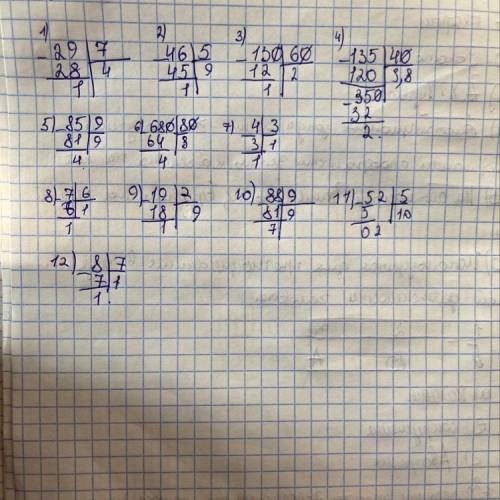 1) 2) 3) 4)
-29|7 -46|5 -130|60 -135|40
28|4 45|9 12|2 120|3,8
1 1 1 -350
32
2.
5) -85|9 6) 680|80 7) 4|3
81|9 64|8 3|1
4. 4 1
8) -7|6 9) -19|2 10) 88|9 11) -52|5
6|1 18|9 81|9 5|10
1 1 7 02
12) -8|7
7|1
1.